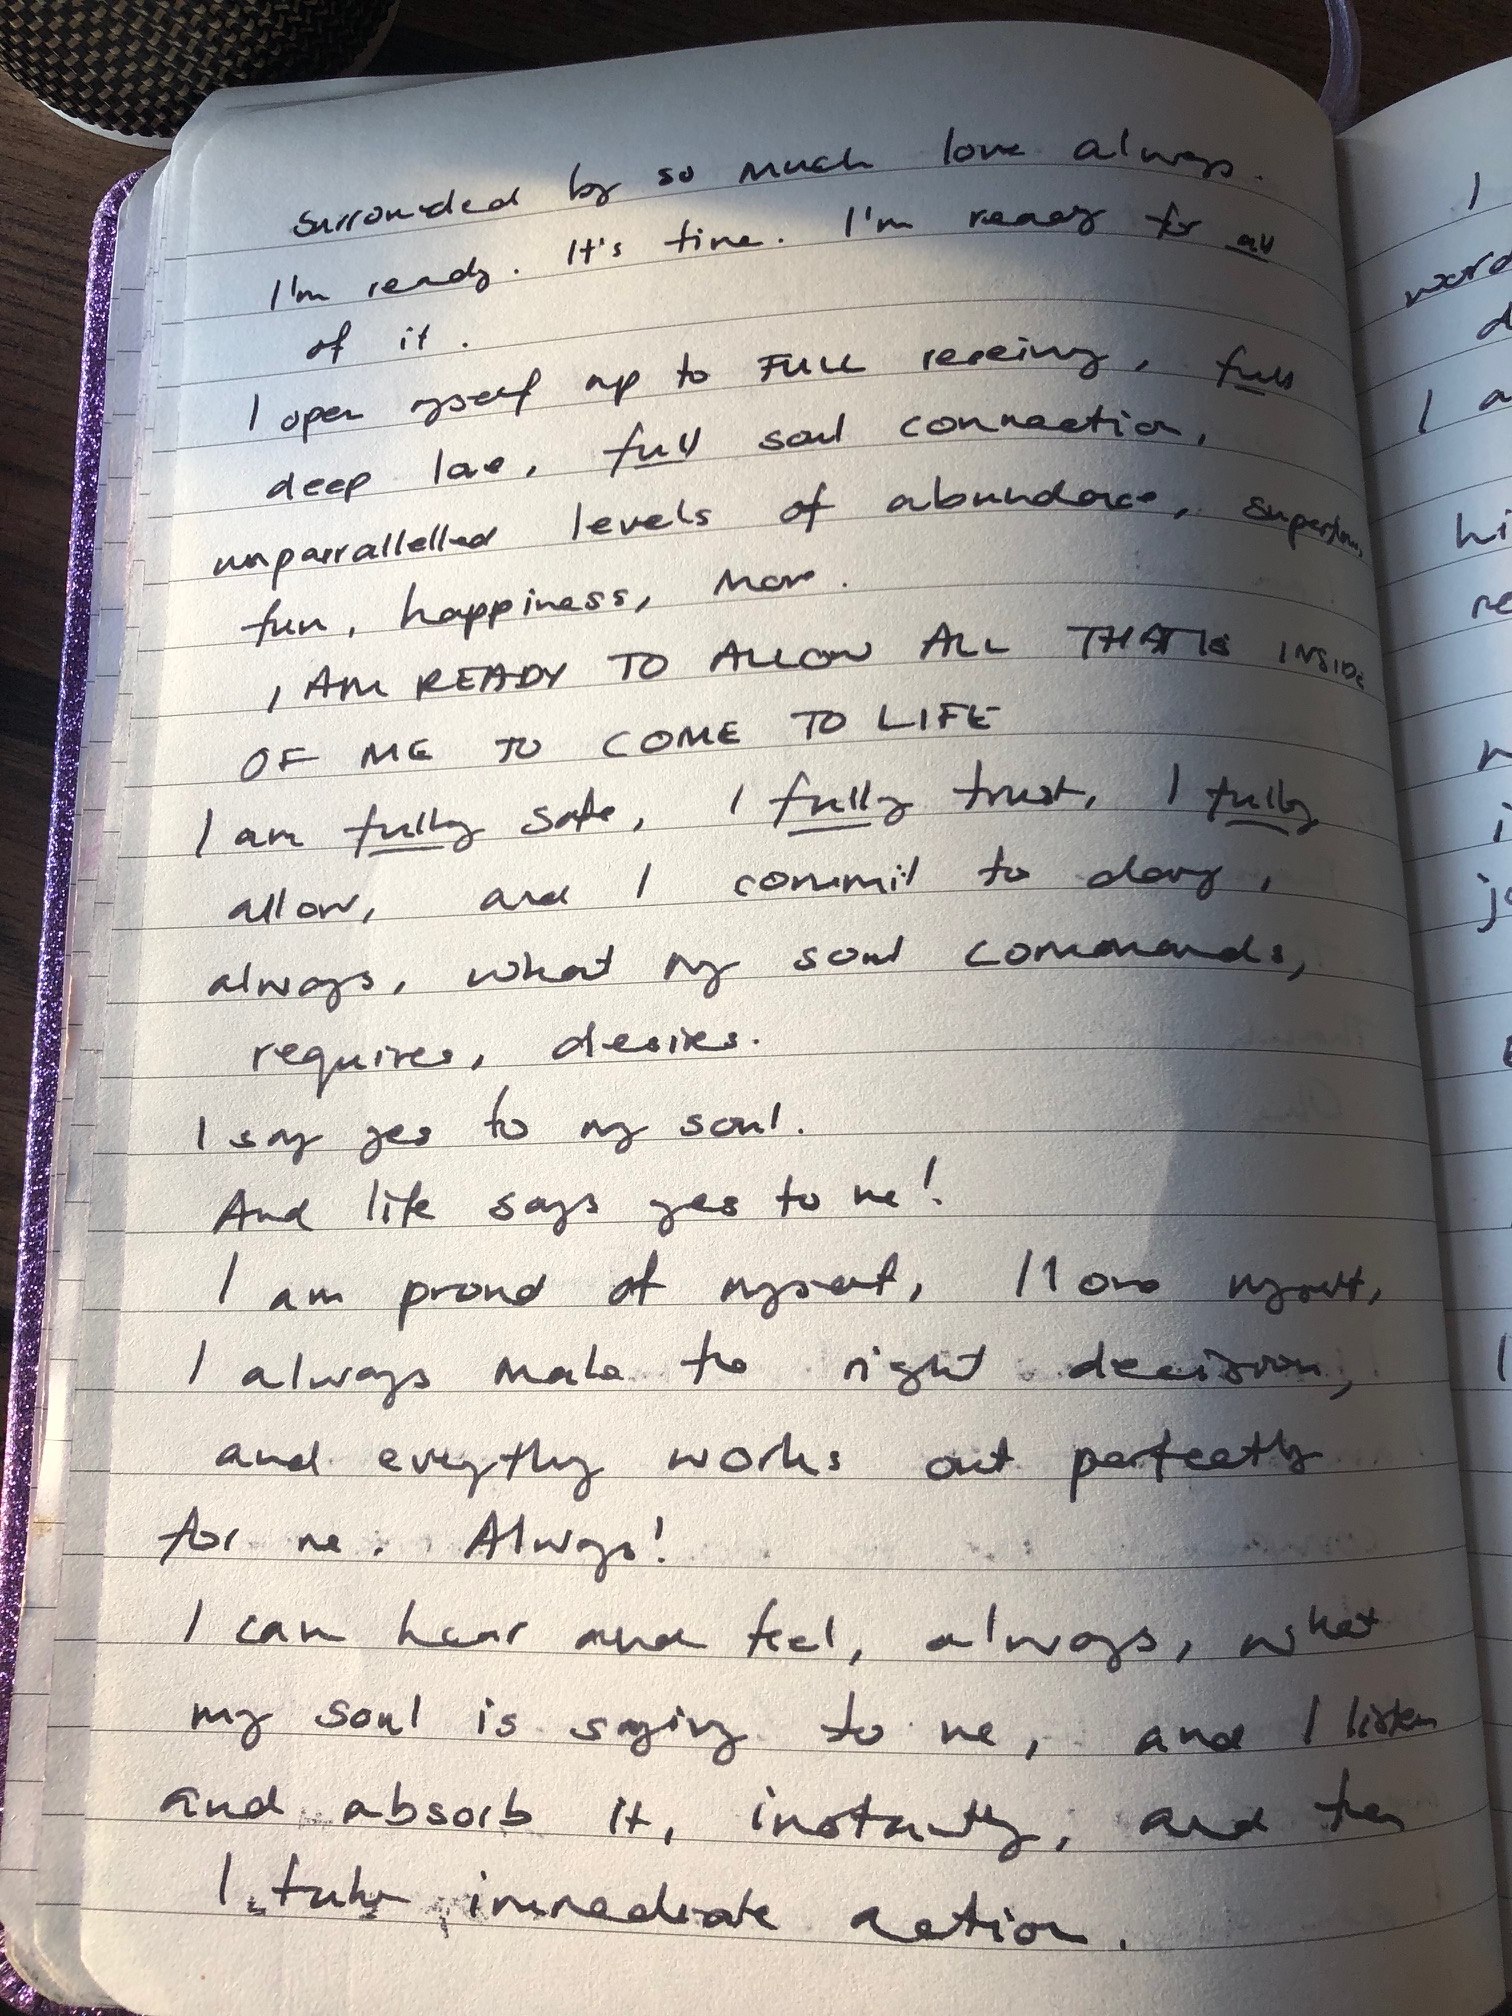 surrounded by so much love always.
I'm ready. It's time. I'm ready for all
of it.
I open myself up to FULL receiving, full
deep love, full soul connection,
unparrallelled levels of abundance, superflow,
fun, happiness, more.
I AM READY TO ALLOW ALL THAT IS INSIDE
OF ME TO COME TO LIFE
I am fully safe, I fully trust, I fully
allow, and I commit to doing,
always, what my soul commands,
requires, desires.
I say yes to my soul.
And life says yes to me!
I am proud of myself, I love myself,
I always make the right decision,
and everything works out perfectly
for me. Always!
I can hear and feel, always, what
my soul is saying to me, and I listen
and absorb it, instantly, and then
I take immediate action.
I
word
I a
hi
re